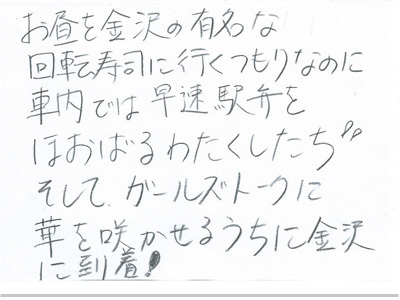 お昼を金沢の有名な
回転寿司に行くつもりなのに
車内では早速駅弁を
ほおばるわたくしたち〃
そして、ガールズトークに
華を咲かせるうちに金沢
に到着!